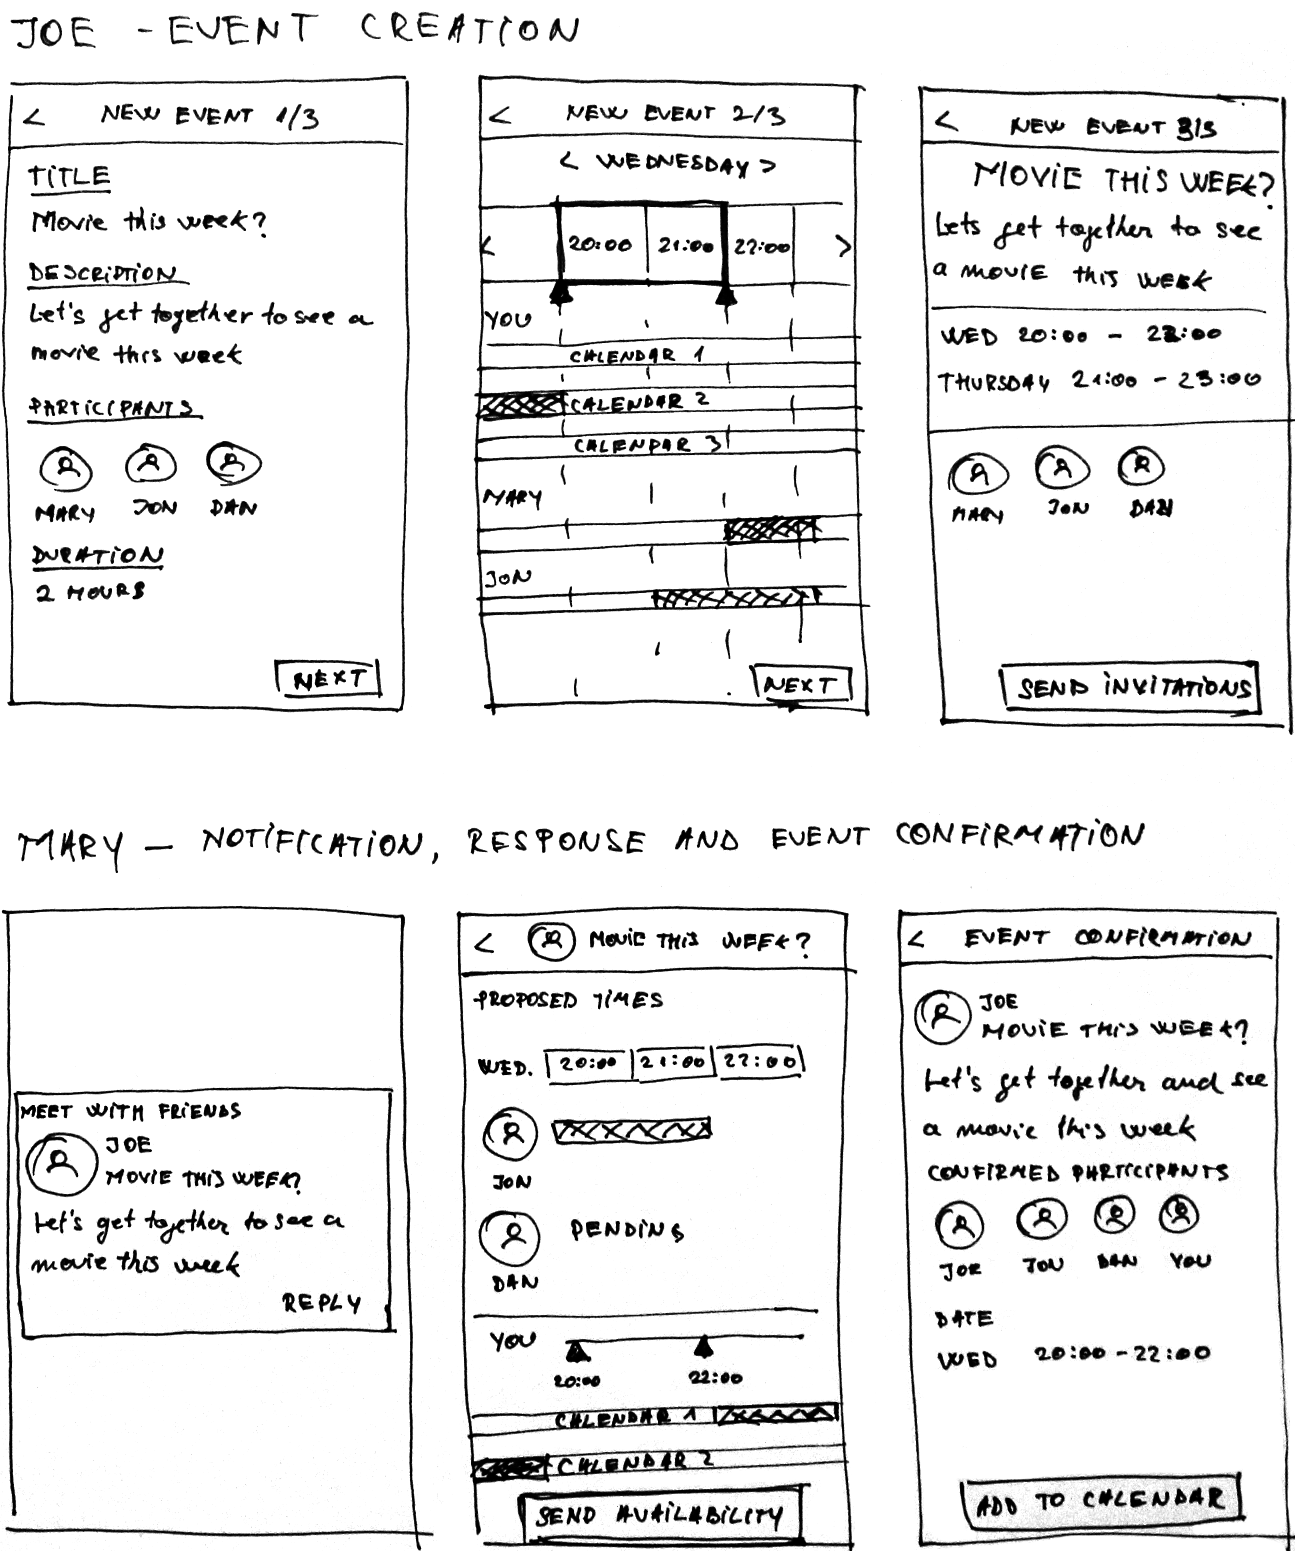 JOE - EVENT CREATION
< NEW EVENT 1/3
TITLE
Movie this week?
DESCRIPTION
Let's get together to see a
movie this week
PARTICIPANTS
MARY JON DAN
DURATION
2 HOURS
NEXT
< NEW EVENT 2/3
< WEDNESDAY >
< 20:00 21:00 22:00 >
YOU
CALENDAR 1
CALENDAR 2
CALENDAR 3
MARY
JON
NEXT
< NEW EVENT 3/3
MOVIE THIS WEEK?
Lets get together to see
a movie this week
WED 20:00 - 22:00
THURSDAY 21:00 - 23:00
MARY JON DAN
SEND INVITATIONS
MARY - NOTIFICATION, RESPONSE AND EVENT CONFIRMATION
MEET WITH FRIENDS
JOE
MOVIE THIS WEEK?
Let's get together to see a
movie this week
REPLY
< MOVIE THIS WEEK?
PROPOSED TIMES
WED. 20:00 21:00 22:00
JON
PENDING
DAN
YOU
20:00 22:00
CALENDAR 1
CALENDAR 2
SEND AVAILABILITY
< EVENT CONFIRMATION
JOE
MOVIE THIS WEEK?
Let's get together and see
a movie this week
CONFIRMED PARTICIPANTS
JOE JON DAN YOU
DATE
WED 20:00 - 22:00
ADD TO CALENDAR